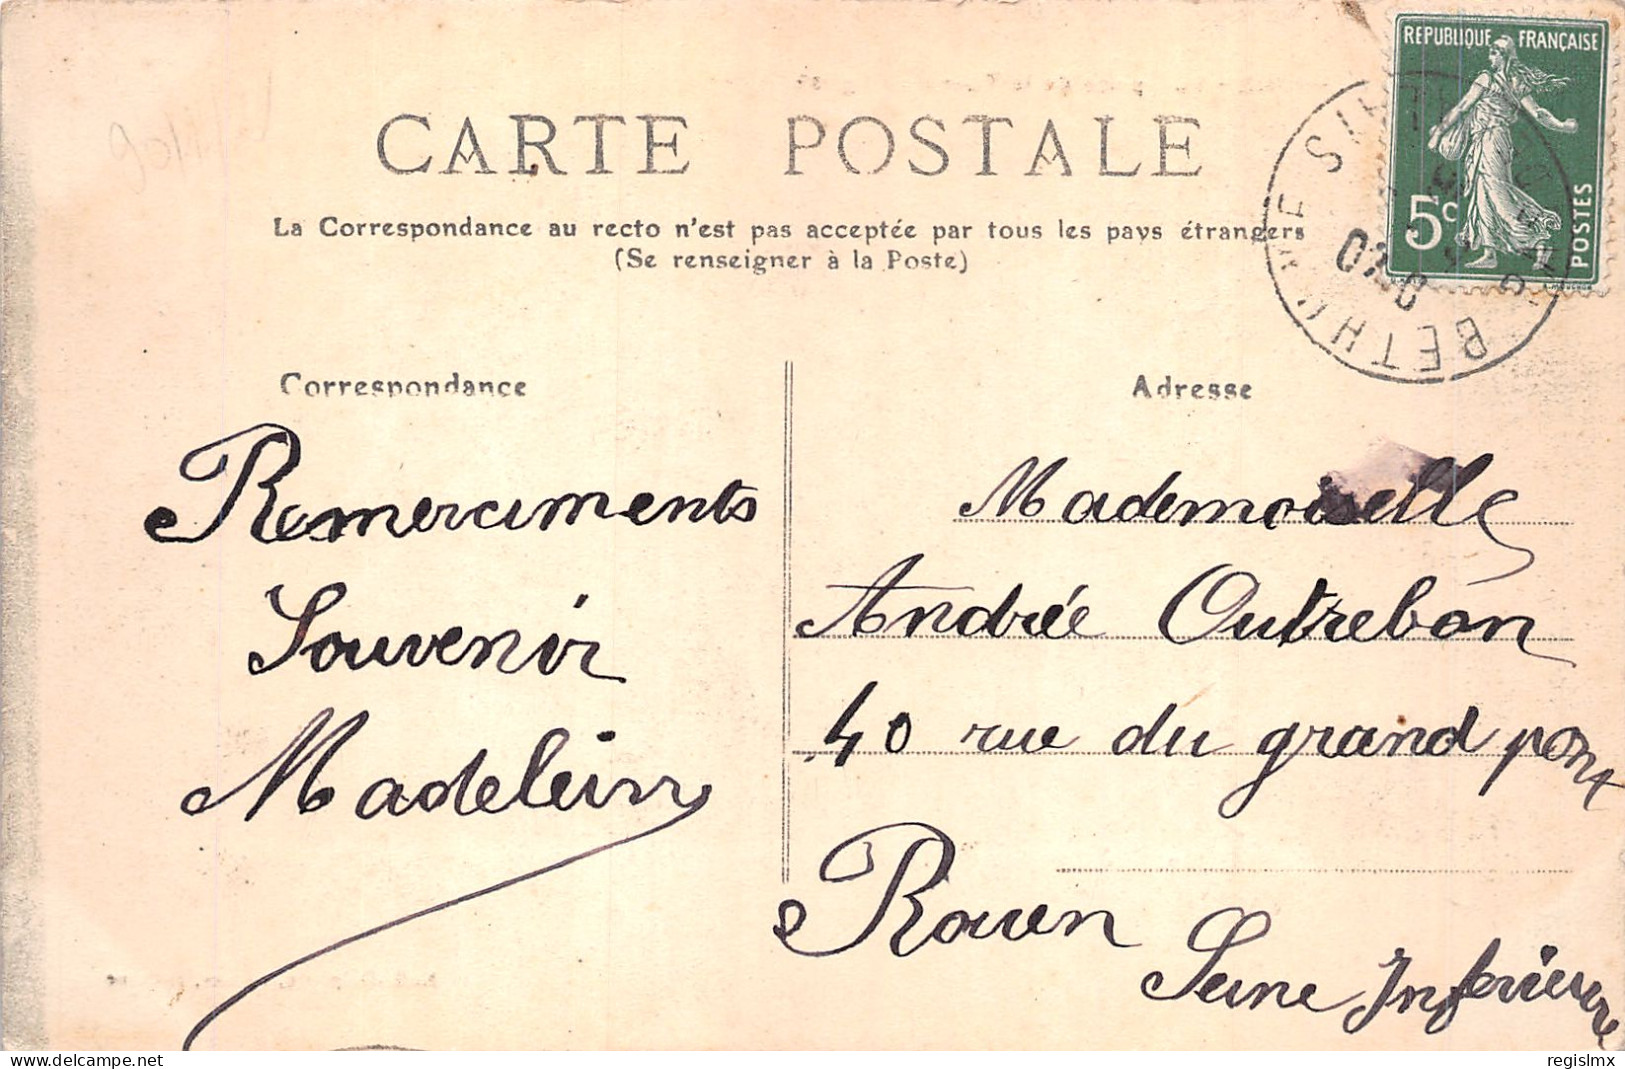 RÉPUBLIQUE FRANÇAISE
5c
POSTES
CARTE POSTALE
La Correspondance au recto n'est pas acceptée par tous les pays étrangers
(Se renseigner à la Poste)
Correspondance
Remerciments
Souvenir
Madeleine
Adresse
Mademoiselle
Andrée Outrebon
40 rue du grand pont
Rouen
Seine Inférieure
delcampe.net
regislmx